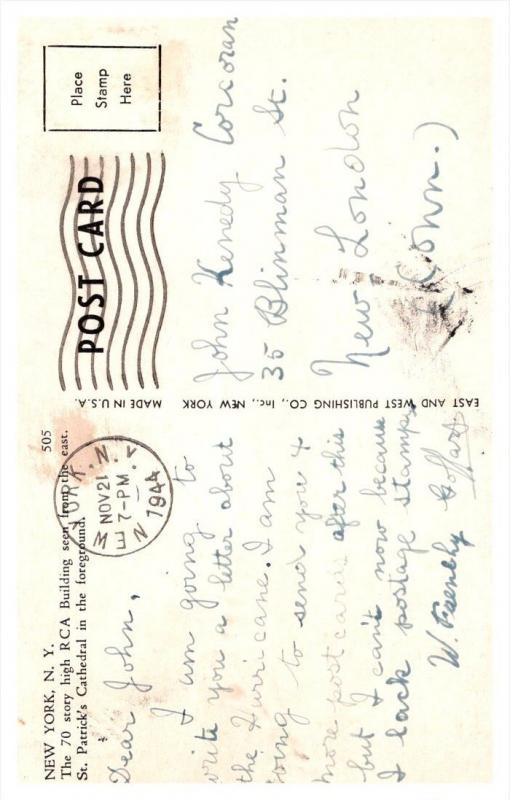 NEW YORK, N. Y. 505
The 70 story high RCA Building seen from the east.
St. Patrick's Cathedral in the foreground.
Dear John,
I am going to
write you a letter about
the Hurricane. I am
going to send you 4
more postcards after this
but I can't now because
I lack postage stamps.
W.
NOV 21
7-PM
1944
MADE IN U.S.A.
EAST AND WEST PUBLISHING CO., INC., NEW YORK
POST CARD
Place
Stamp
Here
John Kenedy Corcoran
35 Blinman St.
New London
(Conn.)